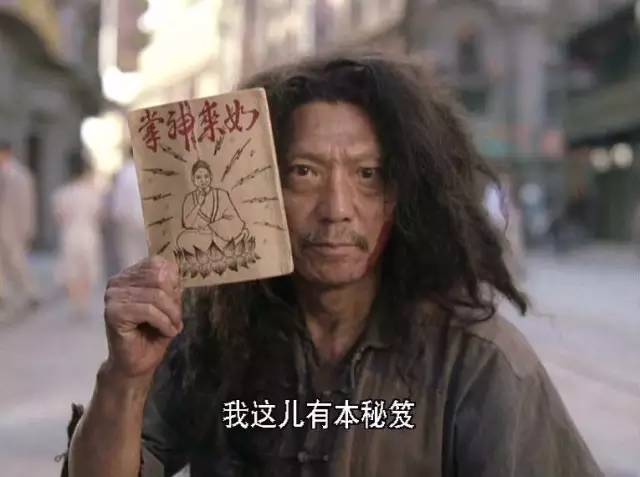 如來神掌
我这儿有本秘笈